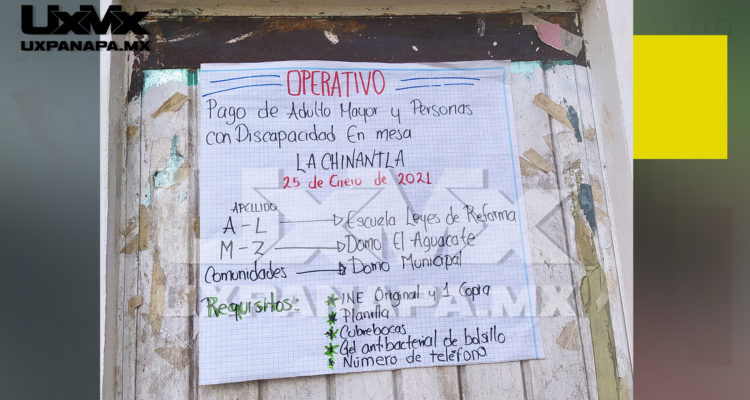 UxMx
UXPANAPA.MX
OPERATIVO
Pago de Adulto Mayor y Personas
con Discapacidad En mesa
LA CHINANTLA
25 de Enero de 2021
APELLIDO
A-L → Escuela Leyes de Reforma
M-Z → Domo El Aguacate
Comunidades → Domo Municipal
Requisitos:
* INE Original y 1 Copia
* Planilla
* Cubrebocas
* Gel antibacterial de bolsillo
* Número de teléfono
UxMx
UXPANAPA.MX